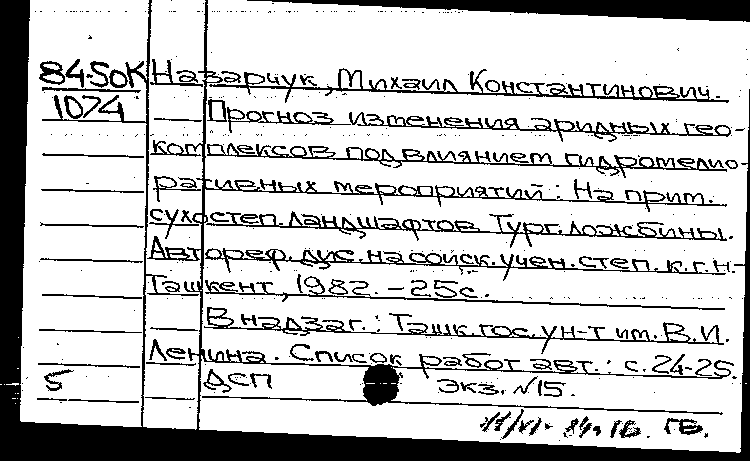 84-5ок Назарчук, Михаил Константинович.
1074 Прогноз изменения аридных гео-
комплексов под влиянием гидромелио-
ративных мероприятий: На прим.
сухостеп. ландшафтов Тург. ложбины.
Автореф. дис. на соиск. учен. степ. к.г.н.-
Ташкент, 1982. - 25с.
В надзаг.: Ташк. гос. ун-т им. В.И.
Ленина. Список работ авт.: с. 24-25.
5 ДСП экз. №15.
84. ГБ.